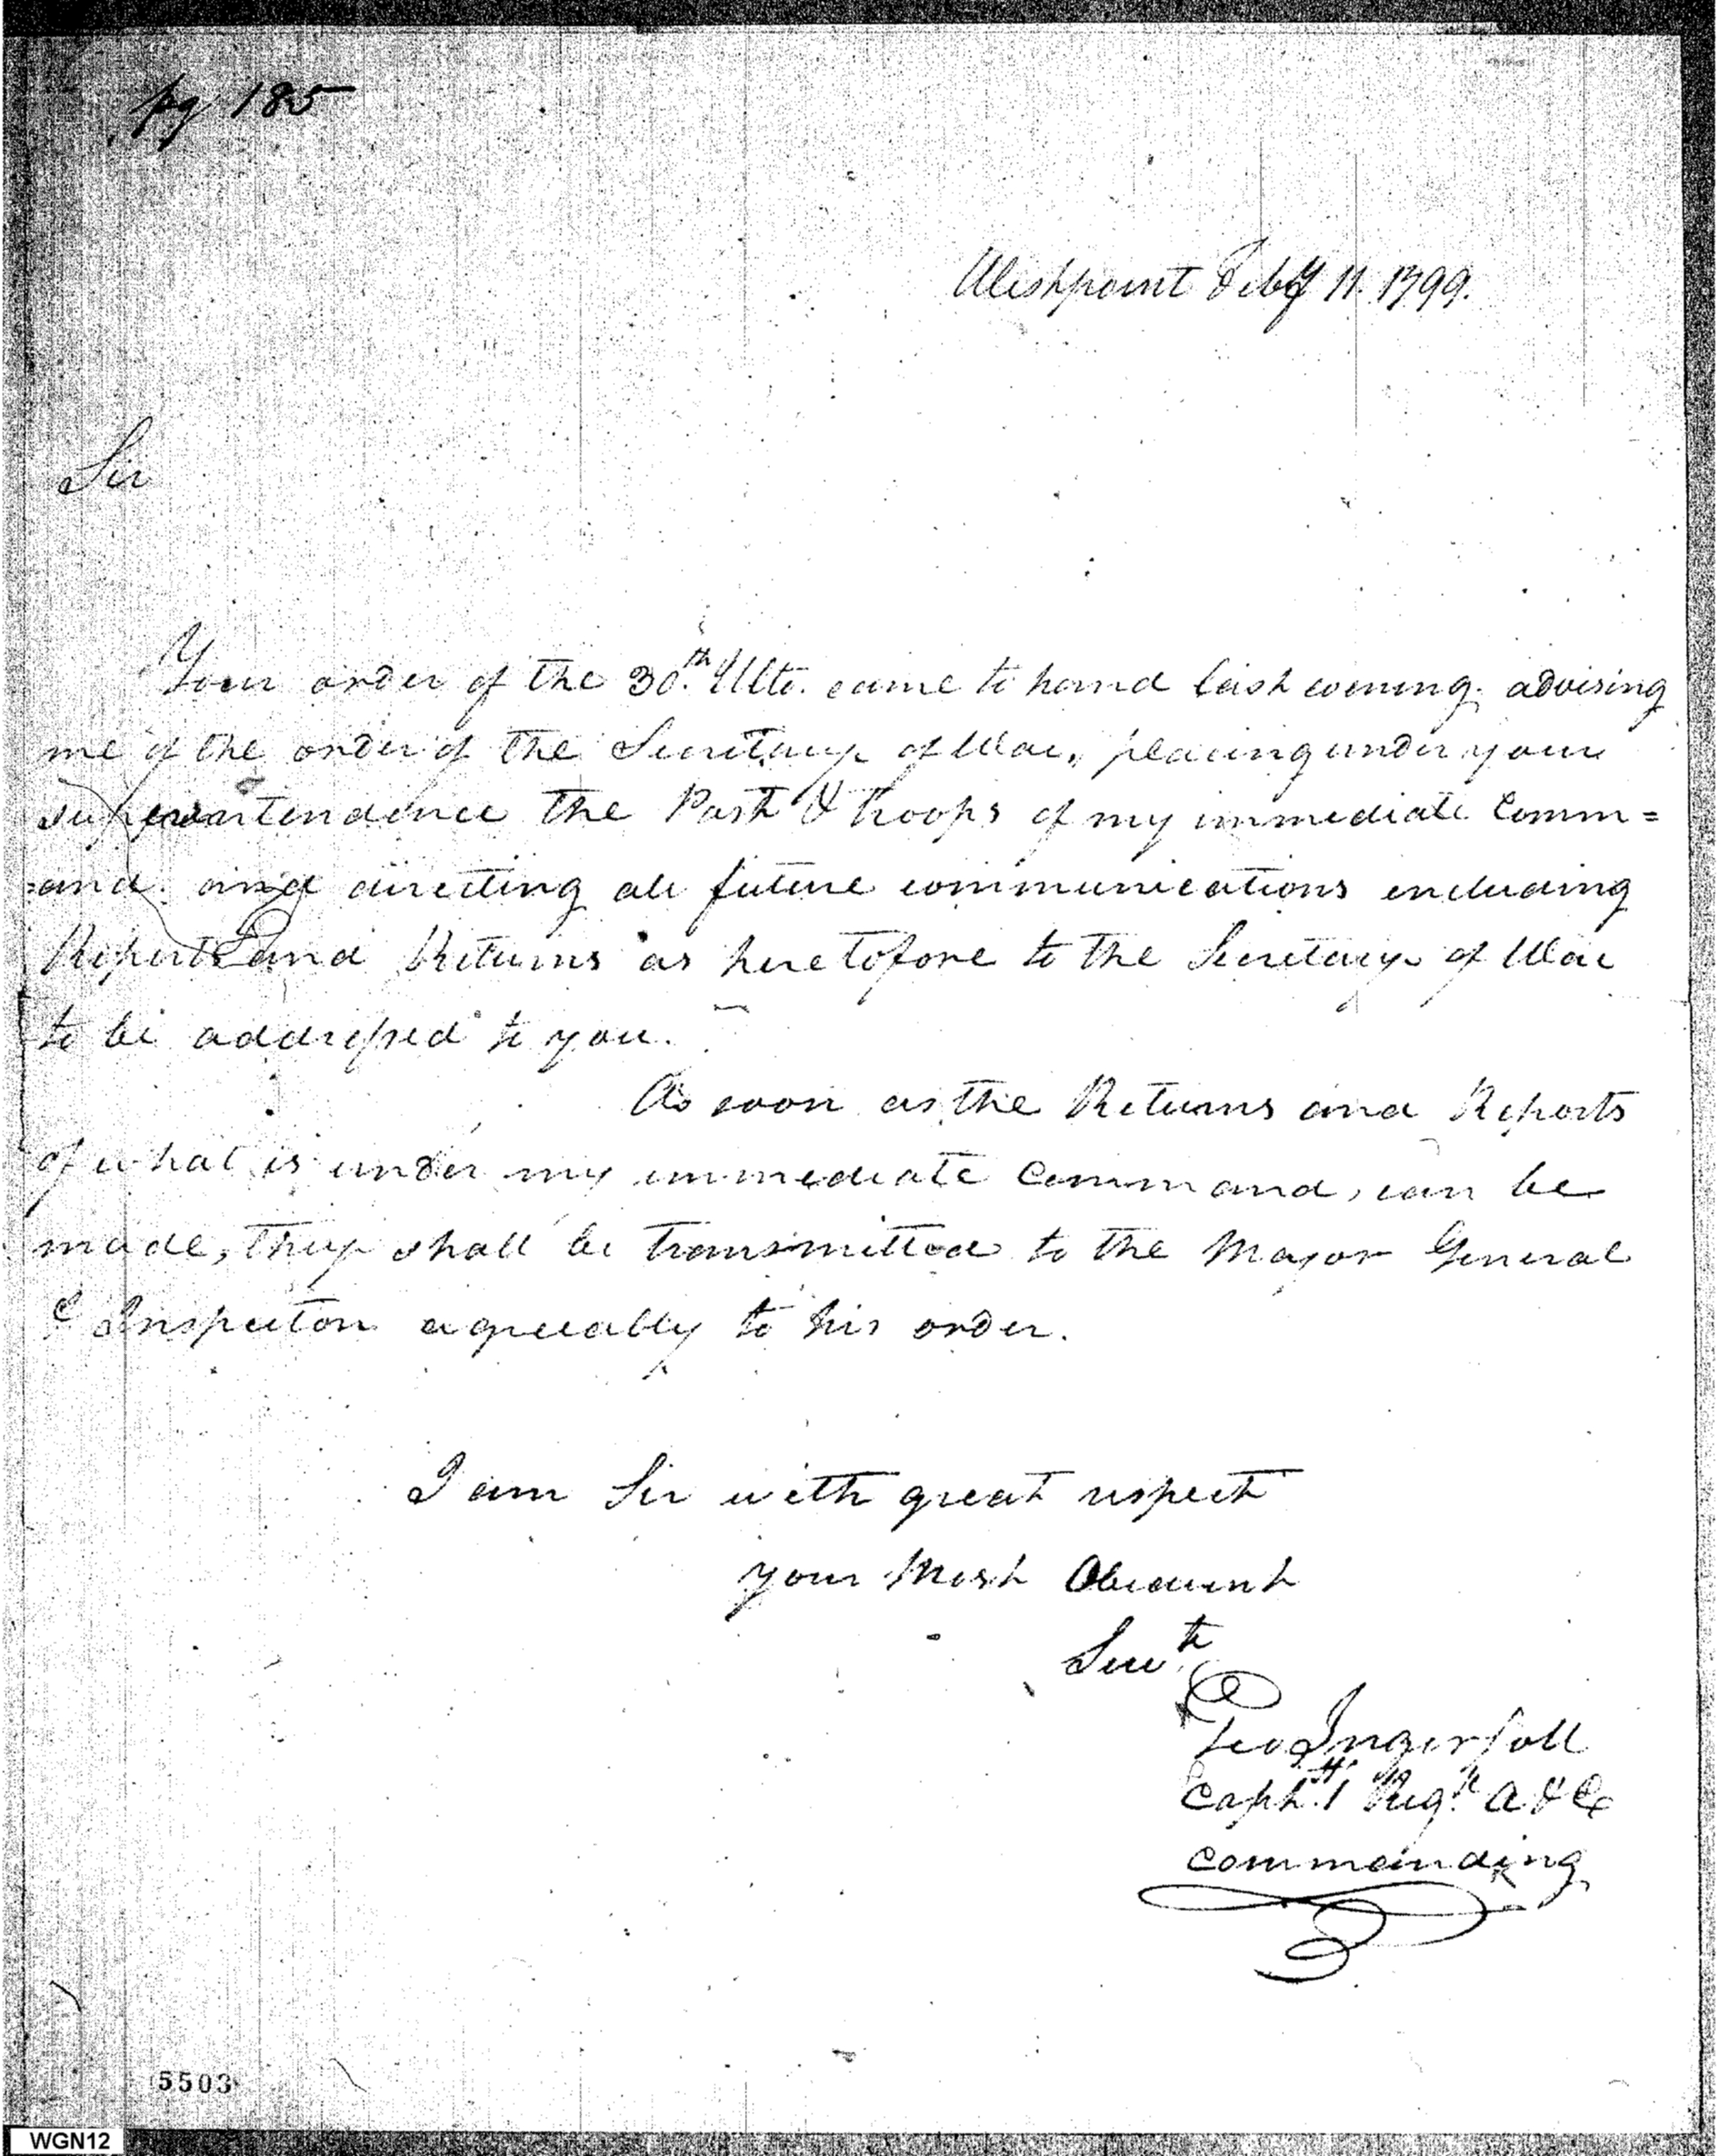 pg 185
Westpoint Feby 11. 1799.
Sir
Your order of the 30th. Ulto. came to hand last evening. advising
me of the order of the Secretary of War, placing under your
superintendence the Post & troops of my immediate Comm=
=and. and directing all future communications including
Reports and Returns as heretofore to the Secretary of War
to be addressed to you.
As soon as the Returns and Reports
of what is under my immediate Command, can be
made, they shall be transmitted to the Major General
& Inspector agreeably to his order.
I am Sir with great respect
your Most Obedient
Servt.
Geo Ingersoll
Capt. 1st Regt. A & E
commanding
5503
WGN12